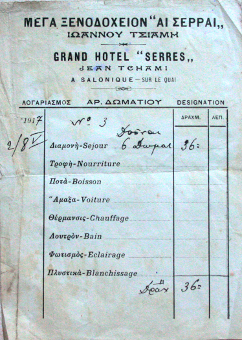 ΜΕΓΑ ΞΕΝΟΔΟΧΕΙΟΝ "ΑΙ ΣΕΡΡΑΙ,,
ΙΩΑΝΝΟΥ ΤΣΙΑΜΗ
GRAND HOTEL "SERRES,,
JEAN TCHAMI
A SALONIQUE — SUR LE QUAI
ΛΟΓΑΡΙΑΣΜΟΣ ΑΡ. ΔΩΜΑΤΙΟΥ DESIGNATION
ΔΡΑΧΜ. ΛΕΠ.
191 Νο 3
2/8
Διαμονή-Sejour 6 36=
Τροφή-Nourriture
Ποτά-Boisson
Ἅμαξα-Voiture
Θέρμανσις-Chauffage
Λουτρόν-Bain
Φωτισμός-Eclairage
Πλυστικά-Blanchissage
Δραχ 36=